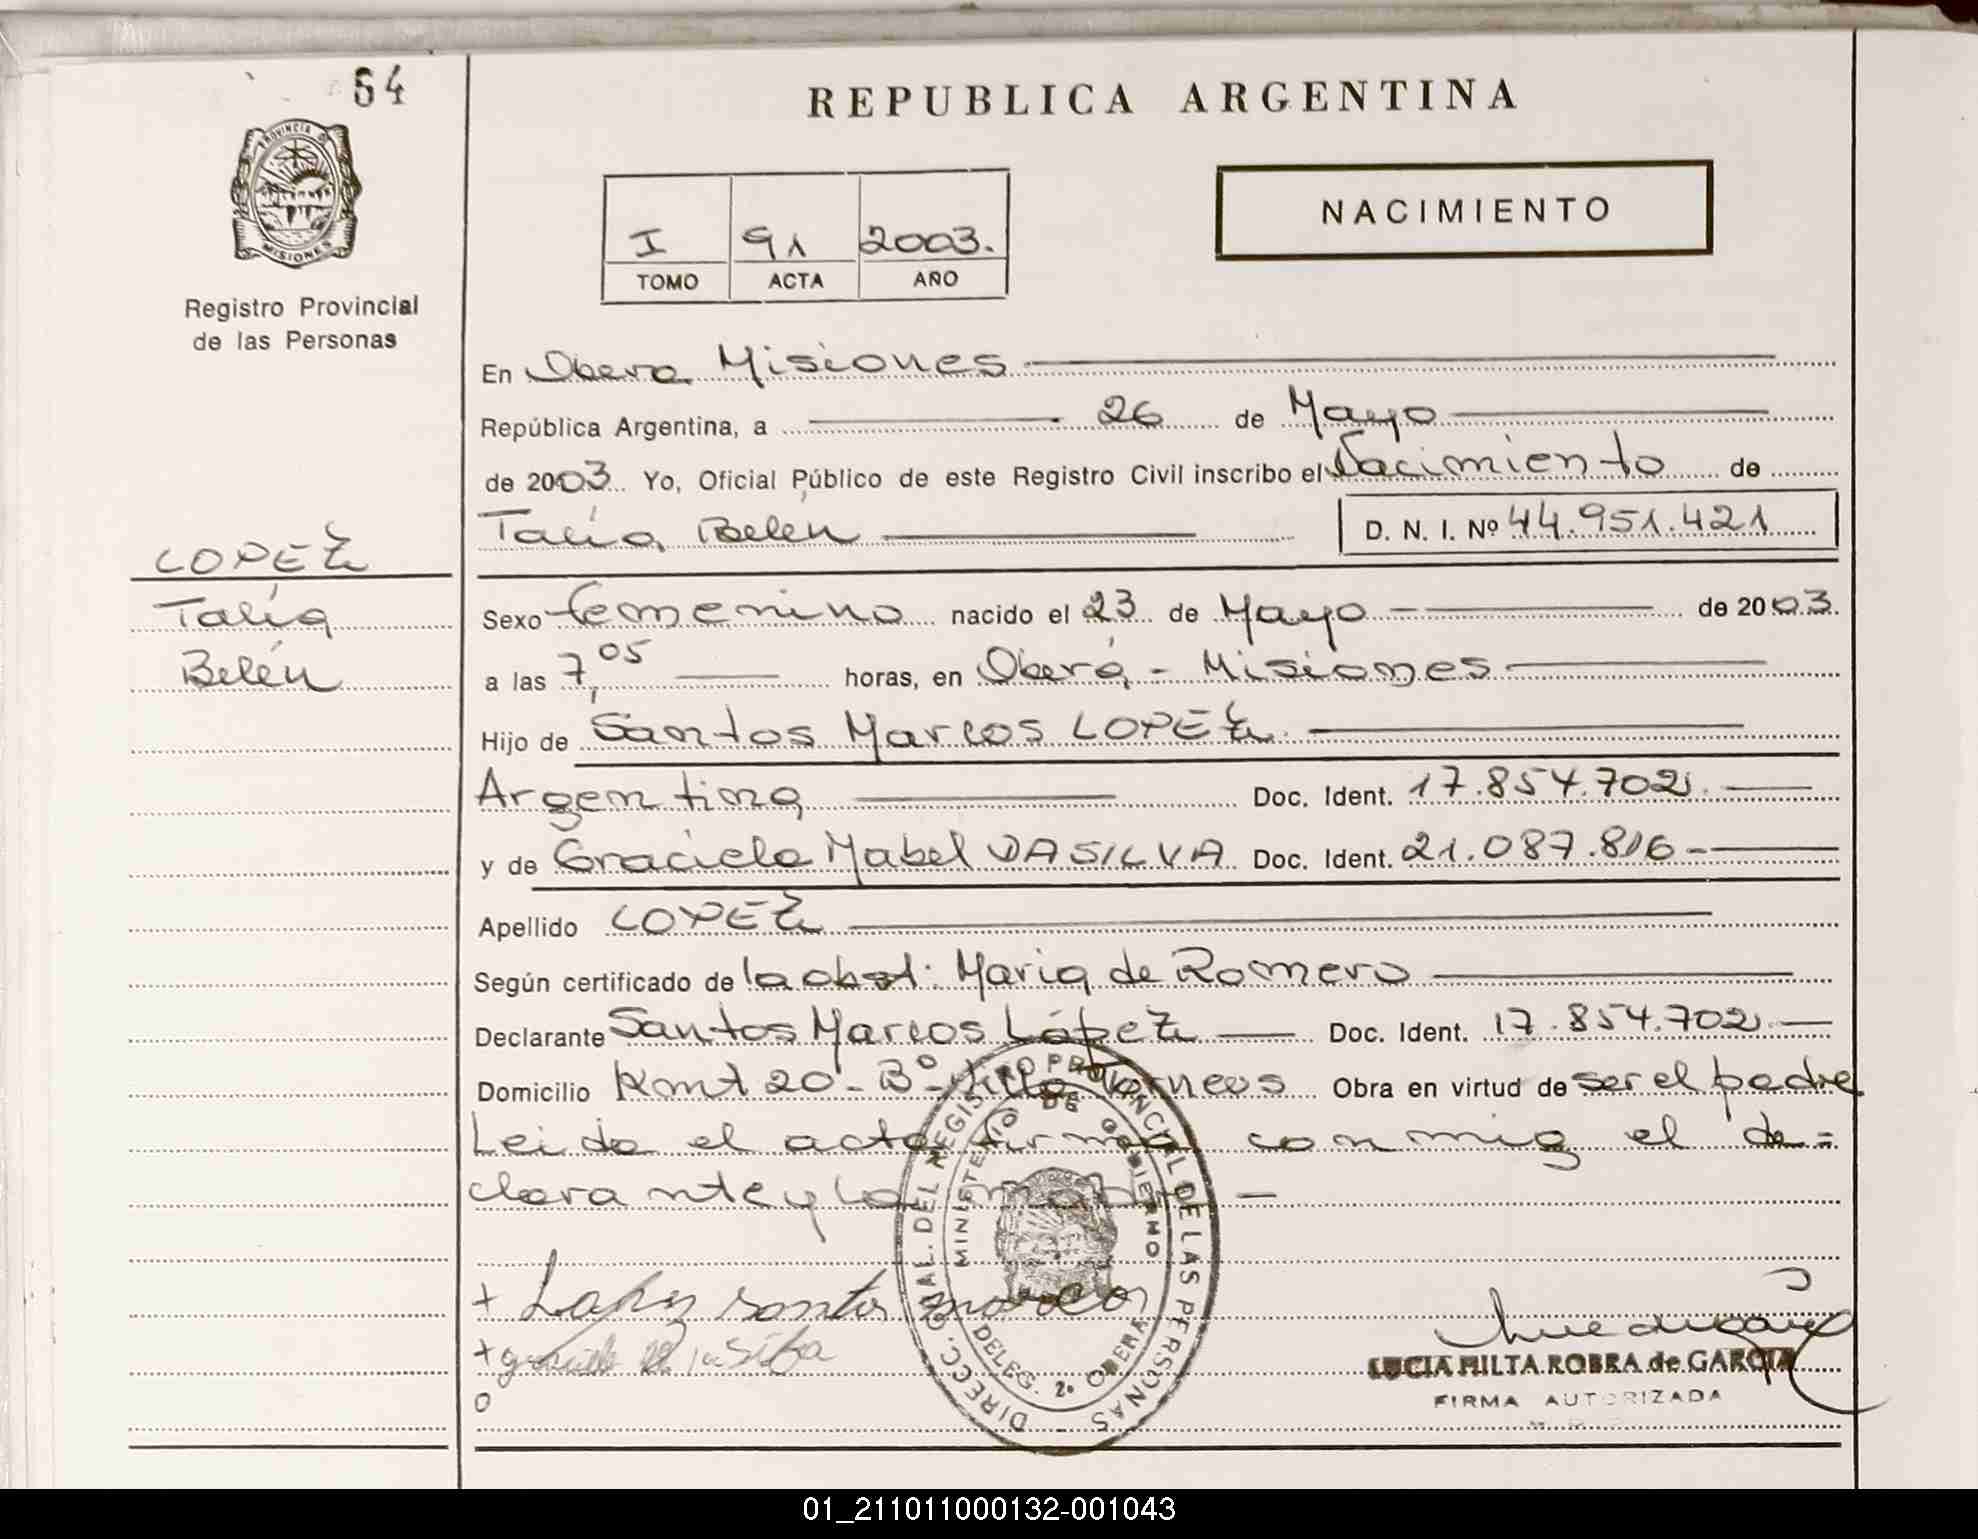 64
PROVINCIA DE
MISIONES
Registro Provincial
de las Personas
REPUBLICA ARGENTINA
I 91 2003.
TOMO ACTA AÑO
NACIMIENTO
En Oberá Misiones
República Argentina, a 26 de Mayo
de 2003 Yo, Oficial Público de este Registro Civil inscribo el Nacimiento de
Talía Belén D. N. I. Nº 44.951.421
LOPEZ
Talía
Belén
Sexo femenino nacido el 23 de Mayo de 2003.
a las 7,05 horas, en Oberá - Misiones
Hijo de Santos Marcos LOPEZ
Argentina Doc. Ident. 17.854.702
y de Graciela Mabel DA SILVA Doc. Ident. 21.087.816
Apellido LOPEZ
Según certificado de la obst: Maria de Romero
Declarante Santos Marcos López Doc. Ident. 17.854.702
Domicilio Kmt 20 - Bº Obra en virtud de ser el padre
Leido el acta firman conmigo el de=
clarante y la madre -
+ Lopez Santos Marcos
+ graciela M da Silva
0
DIRECC. GRAL. DEL REGISTRO PROVINCIAL DE LAS PERSONAS
MINISTERIO DE GOBIERNO
DELEG. 2º OBERA
LUCIA MILTA ROBRA de GARCIA
FIRMA AUTORIZADA
01_211011000132-001043